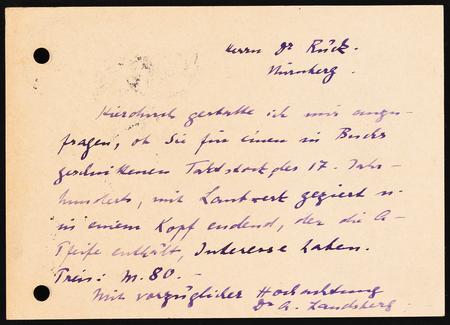 Herrn Dr Rück.
Nürnberg.
Hierdurch gestatte ich mir anzu-
fragen, ob Sie für einen in Buchs
geschnittenen Taktstock des 17. Jahr-
hunderts, mit Laubwerk geziert u.
in einem Kopf endend, der die A-
Pfeife enthält, Interesse haben.
Preis: M. 80.-
Mit vorzüglicher Hochachtung
Dr A. Landsberg.